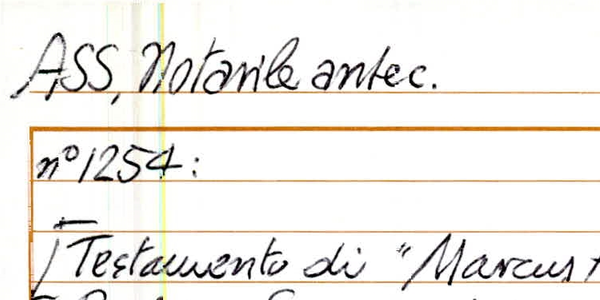 ASS, Notarile antec.
n° 1254:
Testamento di "Marcus